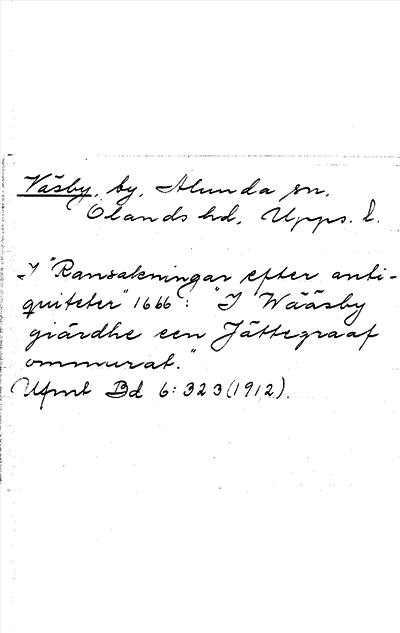 Väsby, by, Alunda sn.
Olands hd, Upps. l.
I "Ransakningar efter anti-
quiteter" 1666: "I Wääsby
giärdhe een Jättegraaf
ommurat."
Ufmt Bd 6: 323 (1912).